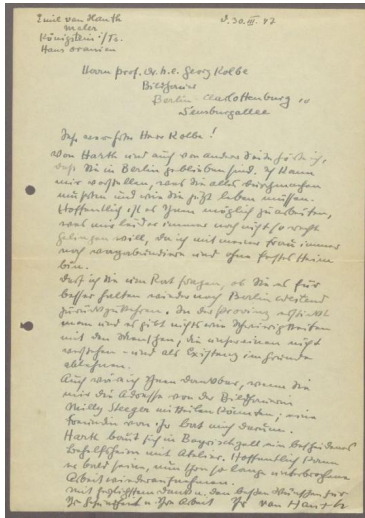 Emil van Hauth
Maler
Königstein i/Ts.
Haus Oranien
d. 30. III. 47
Herrn Prof. Dr. h.c. Georg Kolbe
Bildhauer
Berlin-Charlottenburg 10
Sensburgallee
Sehr verehrter Herr Kolbe!
Von Harth und auch von anderer Seite höre ich,
daß Sie in Berlin geblieben sind. Ich kann
mir vorstellen, was Sie alles durchmachen
mußten und wie Sie jetzt leben müssen.
Hoffentlich ist es Ihnen möglich zu arbeiten,
was mir leider immer noch nicht so recht
gelingen will, da ich mit meiner Frau immer
noch vagabundiere und ohne festes Heim
bin.
Darf ich Sie um Rat fragen, ob Sie es für
besser halten wieder nach Berlin Westend
zurückzukehren. In der Provinz
man und es gibt nichts wie Schwierigkeiten
mit den Menschen, die unsereinen nicht
verstehen – und als Existenz im Grunde
ablehnen.
Auch wäre ich Ihnen dankbar, wenn Sie
mir die Adresse von der Bildhauerin
Milly Steger mitteilen könnten; eine
Freundin von ihr bat mich darum.
Harth baut sich in Bayrischzell ein bescheidenes
Behelfsheim mit Atelier. Hoffentlich kann
er bald seine, nun schon so lange unterbrochene
Arbeit wieder aufnehmen.
Mit herzlichem Dank u. den besten Wünschen für
Ihre Gesundheit u. Ihre Arbeit Ihr van Hauth